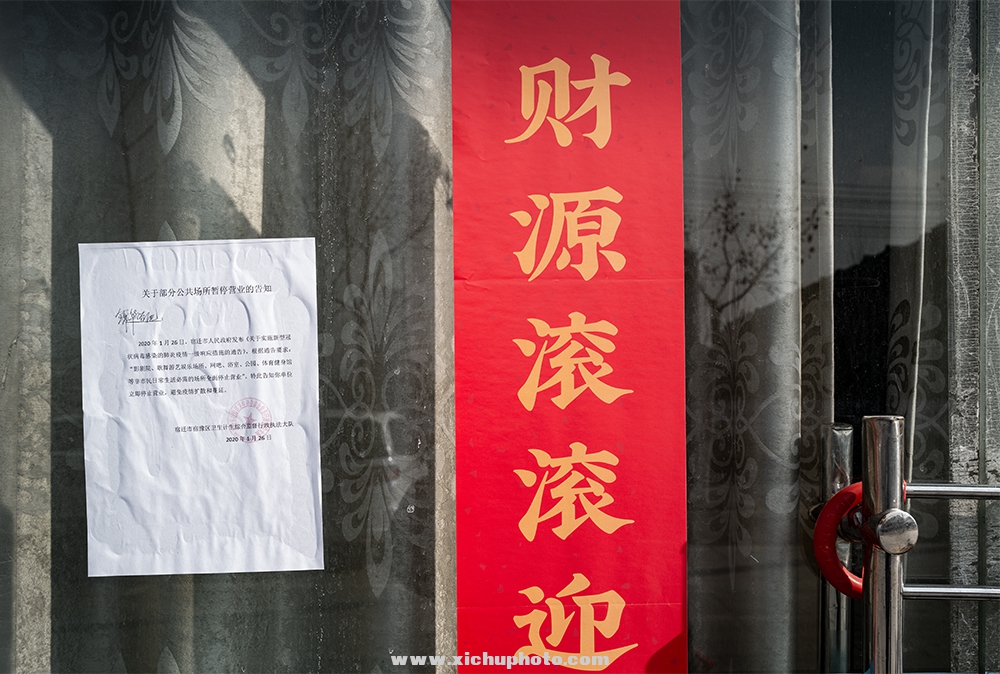 关于部分公共场所暂停营业的告知
2020年1月26日，宿迁市人民政府发布《关于实施新型冠
状病毒感染的肺炎疫情一级响应措施的通告》，根据通告要求，
“影剧院、歌舞游艺娱乐场所、网吧、浴室、公园、体育健身馆
等非市民日常生活必需的场所全面停止营业”。特此告知你单位
立即停止营业，避免疫情扩散和蔓延。
宿迁市宿豫区卫生计生综合监督行政执法大队
2020年1月26日
财
源
滚
滚
迎
www.xichuphoto.com